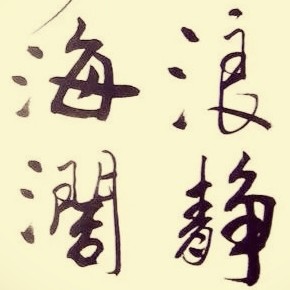 浪静
海濶